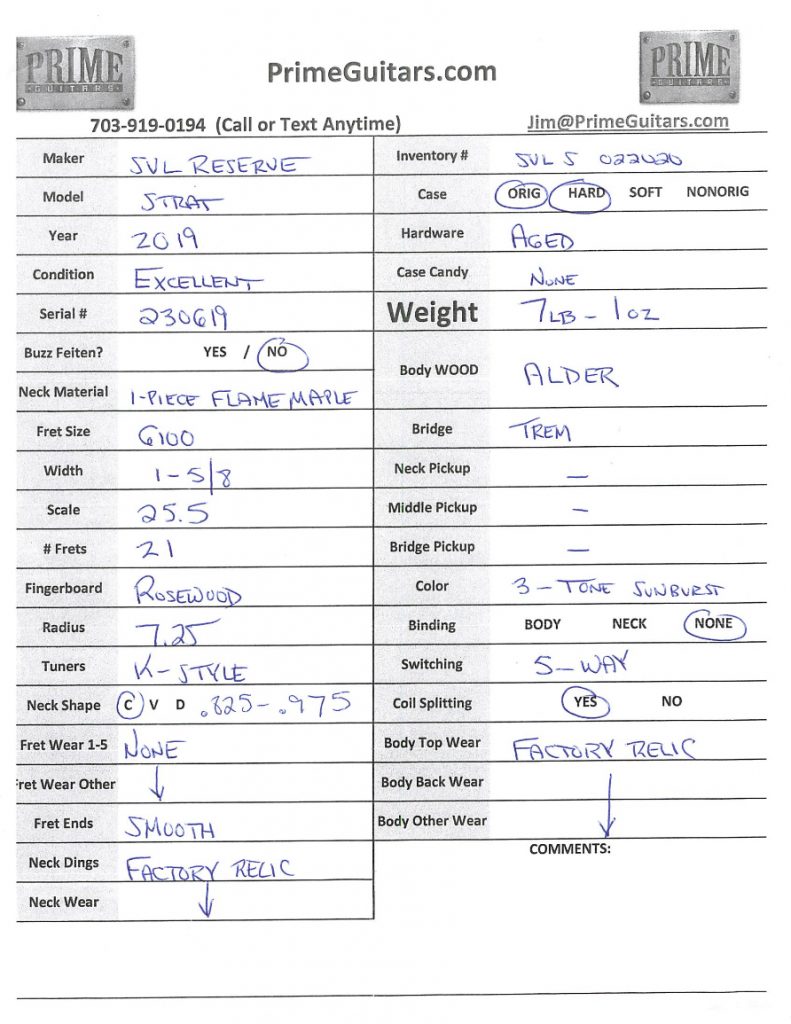 PRIME
GUITARS
PrimeGuitars.com
PRIME
GUITARS
703-919-0194 (Call or Text Anytime)
Jim@PrimeGuitars.com
Maker SVL RESERVE
Model STRAT
Year 2019
Condition EXCELLENT
Serial # 230619
Buzz Feiten? YES / NO
Neck Material 1-PIECE FLAME MAPLE
Fret Size 6100
Width 1-5/8
Scale 25.5
# Frets 21
Fingerboard ROSEWOOD
Radius 7.25
Tuners K-STYLE
Neck Shape C V D .825-.975
Fret Wear 1-5 NONE
Fret Wear Other ↓
Fret Ends SMOOTH
Neck Dings FACTORY RELIC
Neck Wear
Inventory # SVL S 022020
Case ORIG HARD SOFT NONORIG
Hardware AGED
Case Candy NONE
Weight 7LB - 1OZ
Body WOOD ALDER
Bridge TREM
Neck Pickup —
Middle Pickup –
Bridge Pickup —
Color 3-TONE SUNBURST
Binding BODY NECK NONE
Switching 5-WAY
Coil Splitting YES NO
Body Top Wear FACTORY RELIC
Body Back Wear
Body Other Wear
COMMENTS: